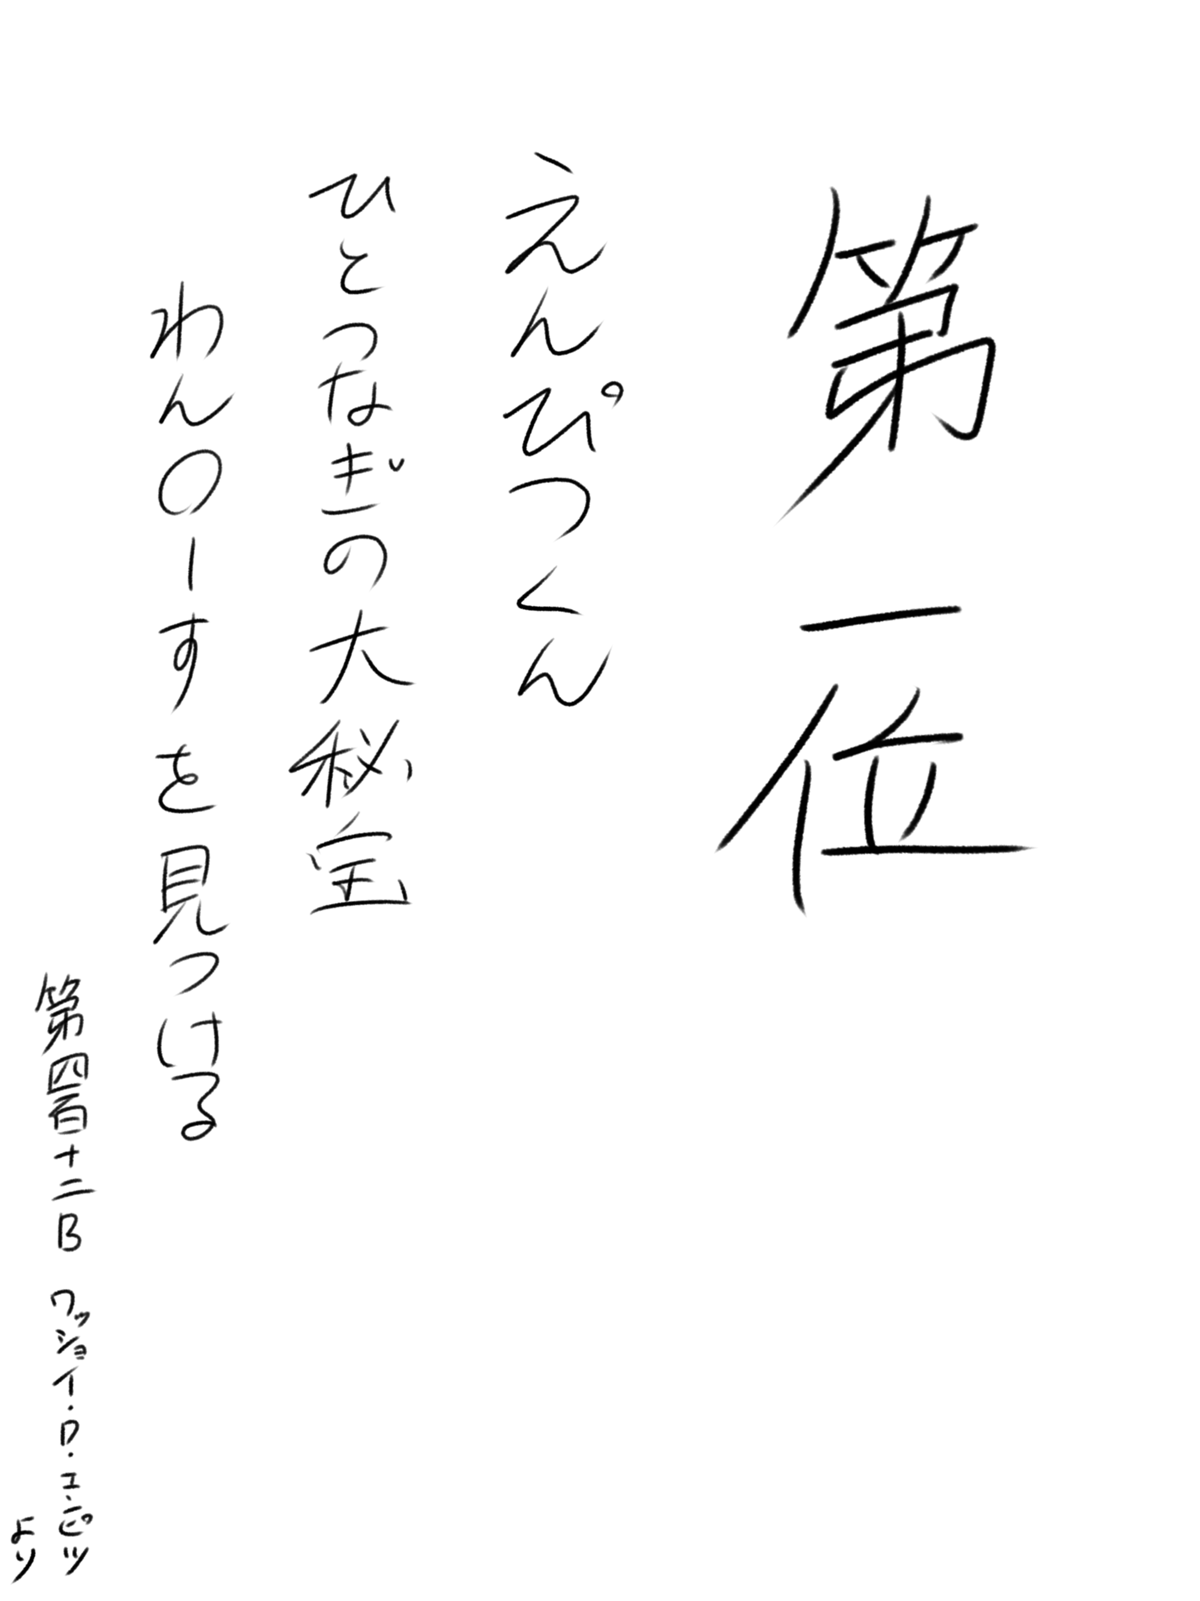 第一位
えんぴつくん
ひとつなぎの大秘宝
わん〇ーすを見つける
第四百十二B ワッショイ・D・エンピツ
より